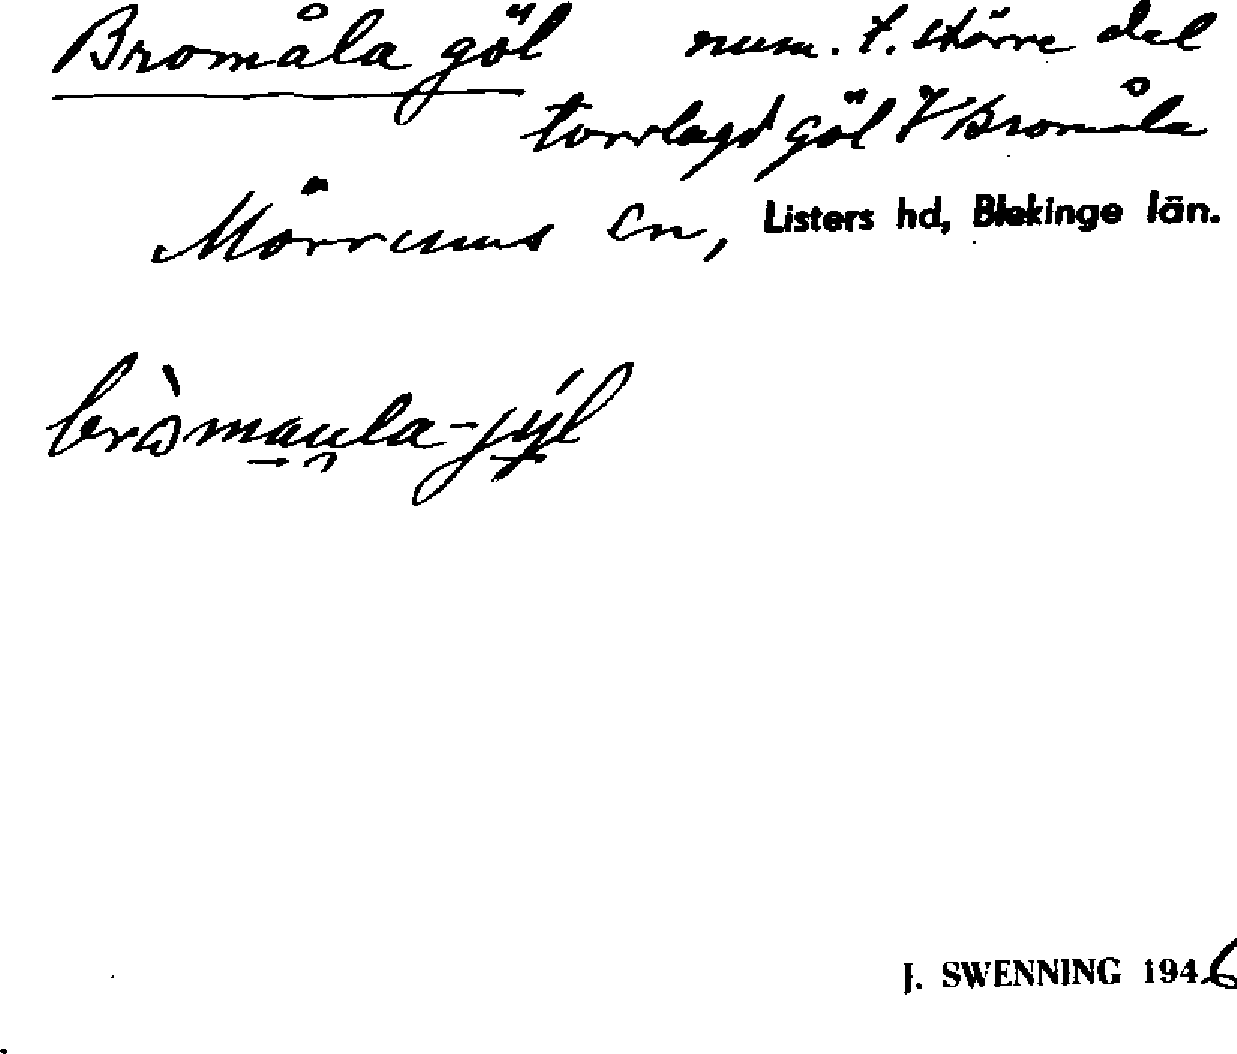 Bromåla göl num. t. större del
torrlagd göl V Bromåla
Mörrums sn, Listers hd, Blekinge län.
bròmau̯la-jýl
J. SWENNING 1946